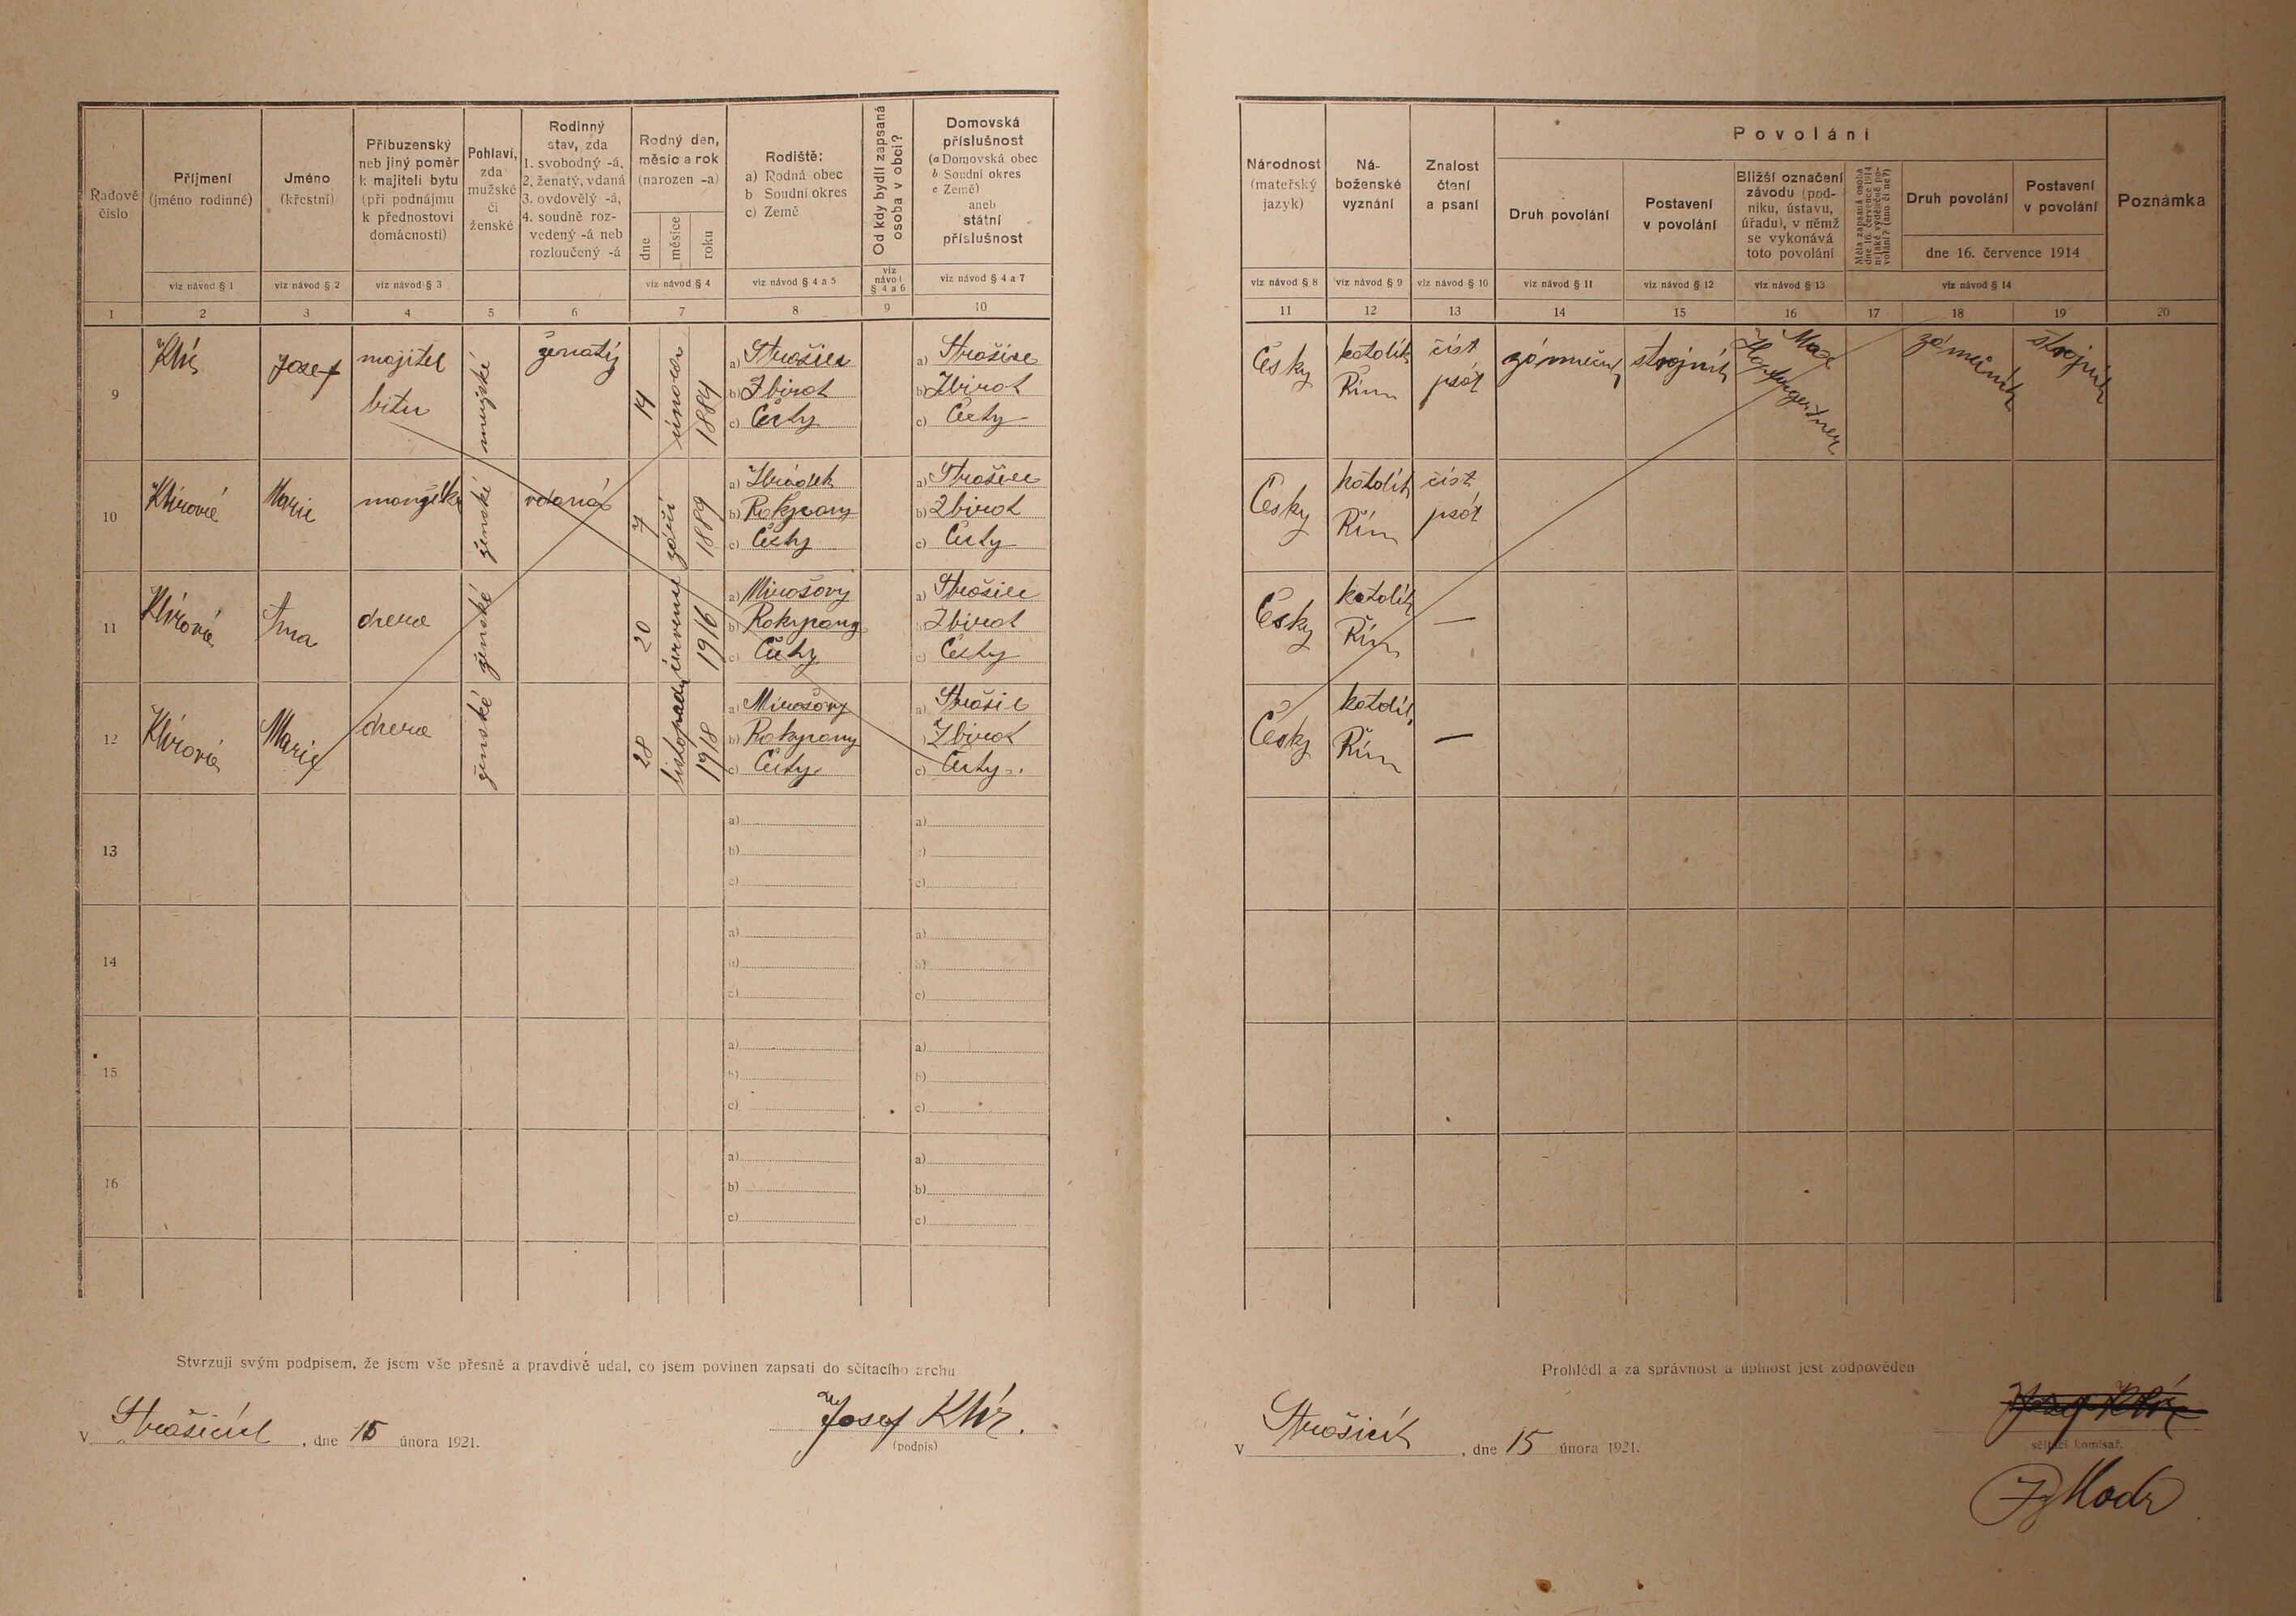 Řadové číslo
Příjmení
(jméno rodinné)
viz návod § 1
Jméno
(křestní)
viz návod § 2
Příbuzenský
neb jiný poměr
k majiteli bytu
(při podnájmu
k přednostovi
domácnosti)
viz návod § 3
Pohlaví,
zda
mužské
či
ženské
Rodinný
stav, zda
1. svobodný -á,
2. ženatý, vdaná
3. ovdovělý -á,
4. soudně roz-
vedený -á neb
rozloučený -á
Rodný den,
měsíc a rok
(narozen -a)
dne
měsíce
roku
viz návod § 4
Rodiště:
a) Rodná obec
b Soudní okres
c) Země
viz návod § 4 a 5
Od kdy bydlí zapsaná
osoba v obci?
viz
návod
§ 4 a 6
Domovská
příslušnost
(a Domovská obec
b Soudní okres
c Země)
aneb
státní
příslušnost
viz návod § 4 a 7
Národnost
(mateřský
jazyk)
viz návod § 8
Ná-
boženské
vyznání
viz návod § 9
Znalost
čtení
a psaní
viz návod § 10
Povolání
Druh povolání
viz návod § 11
Postavení
v povolání
viz návod § 12
Bližší označení
závodu (pod-
niku, ústavu,
úřadu), v němž
se vykonává
toto povolání
viz návod § 13
Měla zapsaná osoba
dne 16. července 1914
nějaké výdělečné po-
volání? (ano či ne?)
Druh povolání
Postavení
v povolání
dne 16. července 1914
viz návod § 14
Poznámka
1 2 3 4 5 6 7 8 9 10 11 12 13 14 15 16 17 18 19 20
9 Klír Josef majitel
bitu
mužské ženatý 14 února 1884
a) Strašice
b) Zbiroh
c) Čechy
a) Strašice
b) Zbiroh
c) Čechy
Česky katolík
Řím
číst
psát
zámečník strojník Max
zámečník strojník
10 Klírová Marie manželka ženské vdaná 7 září 1889
a) Hrádek
b) Rokycany
c) Čechy
a) Strašice
b) Zbiroh
c) Čechy
Česky katolík
Řím
číst
psát
11 Klírová Anna dcera ženské 20 července 1916
a) Mirošovy
b) Rokycany
c) Čechy
a) Strašice
b) Zbiroh
c) Čechy
Česky katolík
Řím
—
12 Klírová Marie dcera ženské 28 listopadu 1918
a) Mirošovy
b) Rokycany
c) Čechy
a) Strašic
b) Zbiroh
c) Čechy
Česky katolík
Řím
—
13
a) a)
b) b)
c) c)
14
a) a)
b) b)
c) c)
15
a) a)
b) b)
c) c)
16
a) a)
b) b)
c) c)
Stvrzuji svým podpisem, že jsem vše přesně a pravdivě udal, co jsem povinen zapsati do sčítacího archu
V Strašicích, dne 15 února 1921.
Josef Klír.
(podpis)
Prohlédl a za správnost a úplnost jest zodpověden
V Strašicích, dne 15 února 1921.
Josef Klír
sčítací komisař.